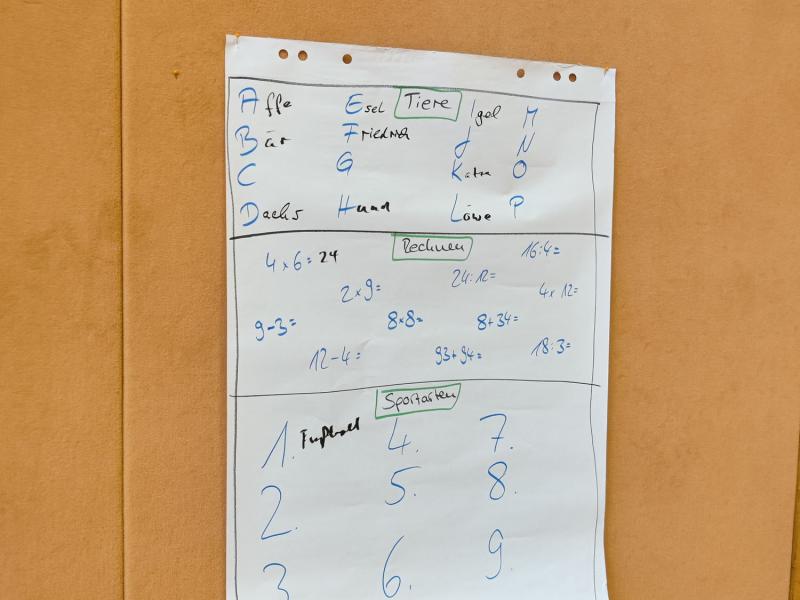 Tiere
Affe Esel Igel M
Bär Friedrich J N
C G Katze O
Dachs Hund Löwe P
Rechnen
4 x 6 = 24 16:4=
2 x 9= 24:12= 4 x 12=
9-3= 8x8= 8+34=
12-4= 93+94= 18:3=
Sportarten
1. Fußball 4. 7.
2. 5. 8.
3 6. 9.